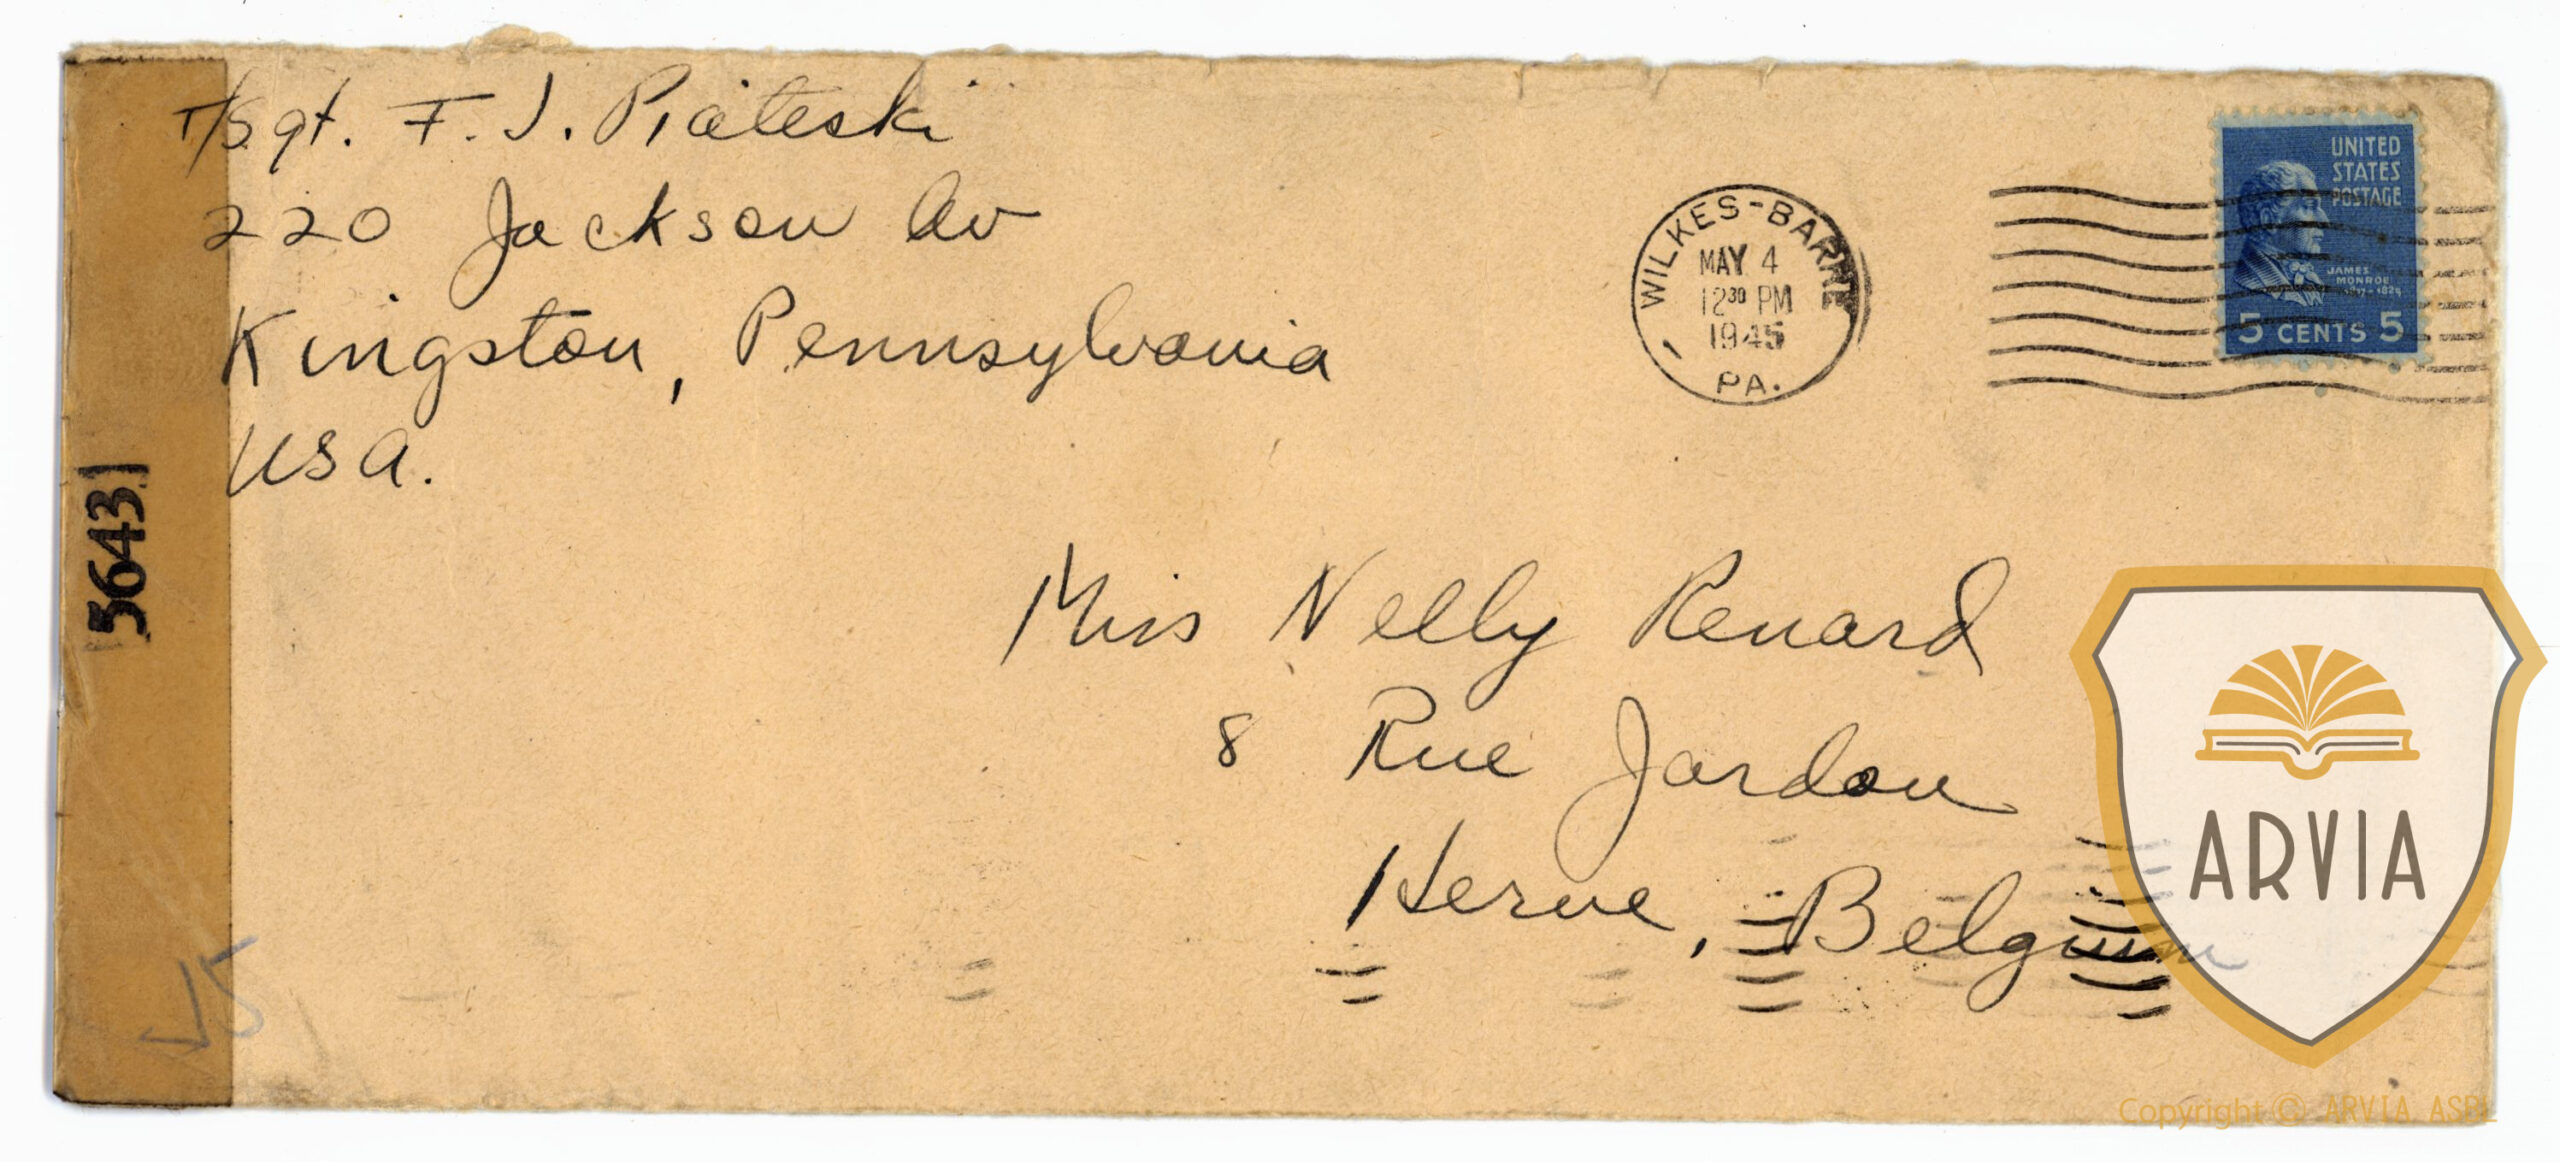 T/Sgt. F. J. Piateski
220 Jackson Av
Kingston, Pennsylvania
USA.
WILKES-BARRE
MAY 4
12 30 PM
1945
1
PA.
UNITED
STATES
POSTAGE
JAMES
MONROE
1817-1824
5 CENTS 5
5643
Miss Nelly Renard
8 Rue Jardon
Herve, Belgium
15
ARVIA
Copyright © ARVIA ASBL